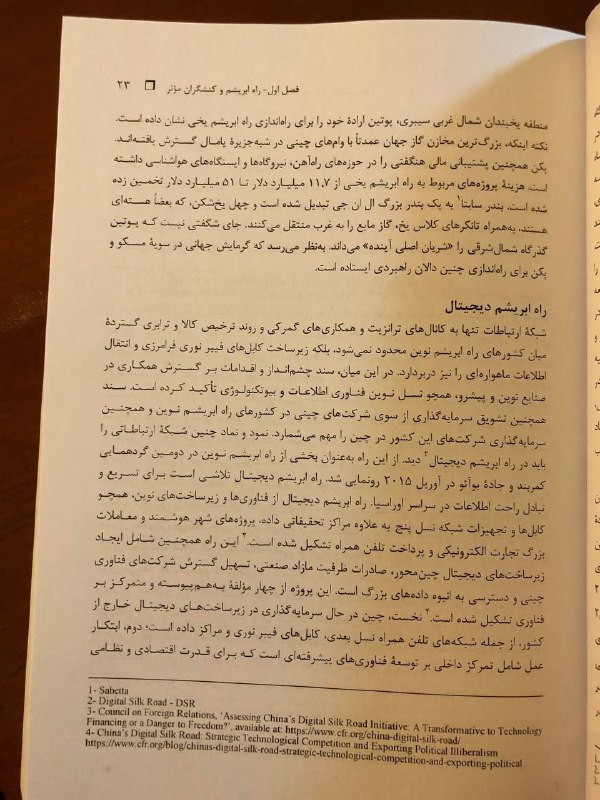 فصل اول- راه ابریشم و کنشگران مؤثر ❐ ۲۳
منطقه یخبندان شمال غربی سیبری، پوتین ارادهٔ خود را برای راه‌اندازی راه ابریشم یخی نشان داده است.
نکته اینکه، بزرگ‌ترین مخازن گاز جهان عمدتاً با وام‌های چینی در شبه‌جزیرهٔ یامال گسترش یافته‌اند.
پکن همچنین پشتیبانی مالی هنگفتی را در حوزه‌های راه‌آهن، نیروگاه‌ها و ایستگاه‌های هواشناسی داشته
است. هزینهٔ پروژه‌های مربوط به راه ابریشم یخی از ۱۱,۷ میلیارد دلار تا ۵۱ میلیارد دلار تخمین زده
شده است. بندر سابتا۱ به یک بندر بزرگ ال ان جی تبدیل شده است و چهل یخ‌شکن، که بعضاً هسته‌ای
هستند، به‌همراه تانکرهای کلاس یخ، گاز مایع را به غرب منتقل می‌کنند. جای شگفتی نیست که پوتین
گذرگاه شمال‌شرقی را «شریان اصلی آینده» می‌داند. به‌نظر می‌رسد که گرمایش جهانی در سویهٔ مسکو و
پکن برای راه‌اندازی چنین دالان راهبردی ایستاده است.
راه ابریشم دیجیتال
شبکهٔ ارتباطات تنها به کانال‌های ترانزیت و همکاری‌های گمرکی و روند ترخیص کالا و ترابری گستردهٔ
میان کشورهای راه ابریشم نوین محدود نمی‌شود، بلکه زیرساخت کابل‌های فیبر نوری فرامرزی و انتقال
اطلاعات ماهواره‌ای را نیز دربردارد. در این میان، سند چشم‌انداز و اقدامات بر گسترش همکاری در
صنایع نوین و پیشرو، همچو نسل نوین فناوری اطلاعات و بیوتکنولوژی تأکید کرده است. سند
همچنین تشویق سرمایه‌گذاری از سوی شرکت‌های چینی در کشورهای راه ابریشم نوین و همچنین
سرمایه‌گذاری شرکت‌های این کشور در چین را مهم می‌شمارد. نمود و نماد چنین شبکهٔ ارتباطاتی را
باید در راه ابریشم دیجیتال۲ دید. از این راه به‌عنوان بخشی از راه ابریشم نوین در دومین گردهمایی
کمربند و جادهٔ بوآئو در آوریل ۲۰۱۵ رونمایی شد. راه ابریشم دیجیتال تلاشی است برای تسریع و
تبادل راحت اطلاعات در سراسر اوراسیا. راه ابریشم دیجیتال از فناوری‌ها و زیرساخت‌های نوین، همچو
کابل‌ها و تجهیزات شبکه نسل پنج به علاوه مراکز تحقیقاتی داده، پروژه‌های شهر هوشمند و معاملات
بزرگ تجارت الکترونیکی و پرداخت تلفن همراه تشکیل شده است.۳ این راه همچنین شامل ایجاد
زیرساخت‌های دیجیتال چین‌محور، صادرات ظرفیت مازاد صنعتی، تسهیل گسترش شرکت‌های فناوری
چینی و دسترسی به انبوه داده‌های بزرگ است. این پروژه از چهار مؤلفهٔ به‌هم‌پیوسته و متمرکز بر
فناوری تشکیل شده است.۴ نخست، چین در حال سرمایه‌گذاری در زیرساخت‌های دیجیتال خارج از
کشور، از جمله شبکه‌های تلفن همراه نسل بعدی، کابل‌های فیبر نوری و مراکز داده است؛ دوم، ابتکار
عمل شامل تمرکز داخلی بر توسعهٔ فناوری‌های پیشرفته‌ای است که برای قدرت اقتصادی و نظامی
1- Sabetta
2- Digital Silk Road - DSR
3- Council on Foreign Relations, ‘Assessing China's Digital Silk Road Initiative: A Transformative to Technology
Financing or a Danger to Freedom?’, available at: https://www.cfr.org/china-digital-silk-road/
4- China's Digital Silk Road: Strategic Technological Competition and Exporting Political Illiberalism
https://www.cfr.org/blog/chinas-digital-silk-road-strategic-technological-competition-and-exporting-political